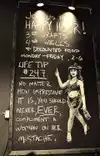 HAPPY HOUR!
$3 DRAFTS
$4 WELLS
DISCOUNTED FOOD
MONDAY-FRIDAY
LIFE TIP
#247
NO MATTER
HOW IMPRESSIVE
IT IS, YOU SHOULD
NEVER EVER
COMPLIMENT A
WOMAN ON HER
MUSTACHE.